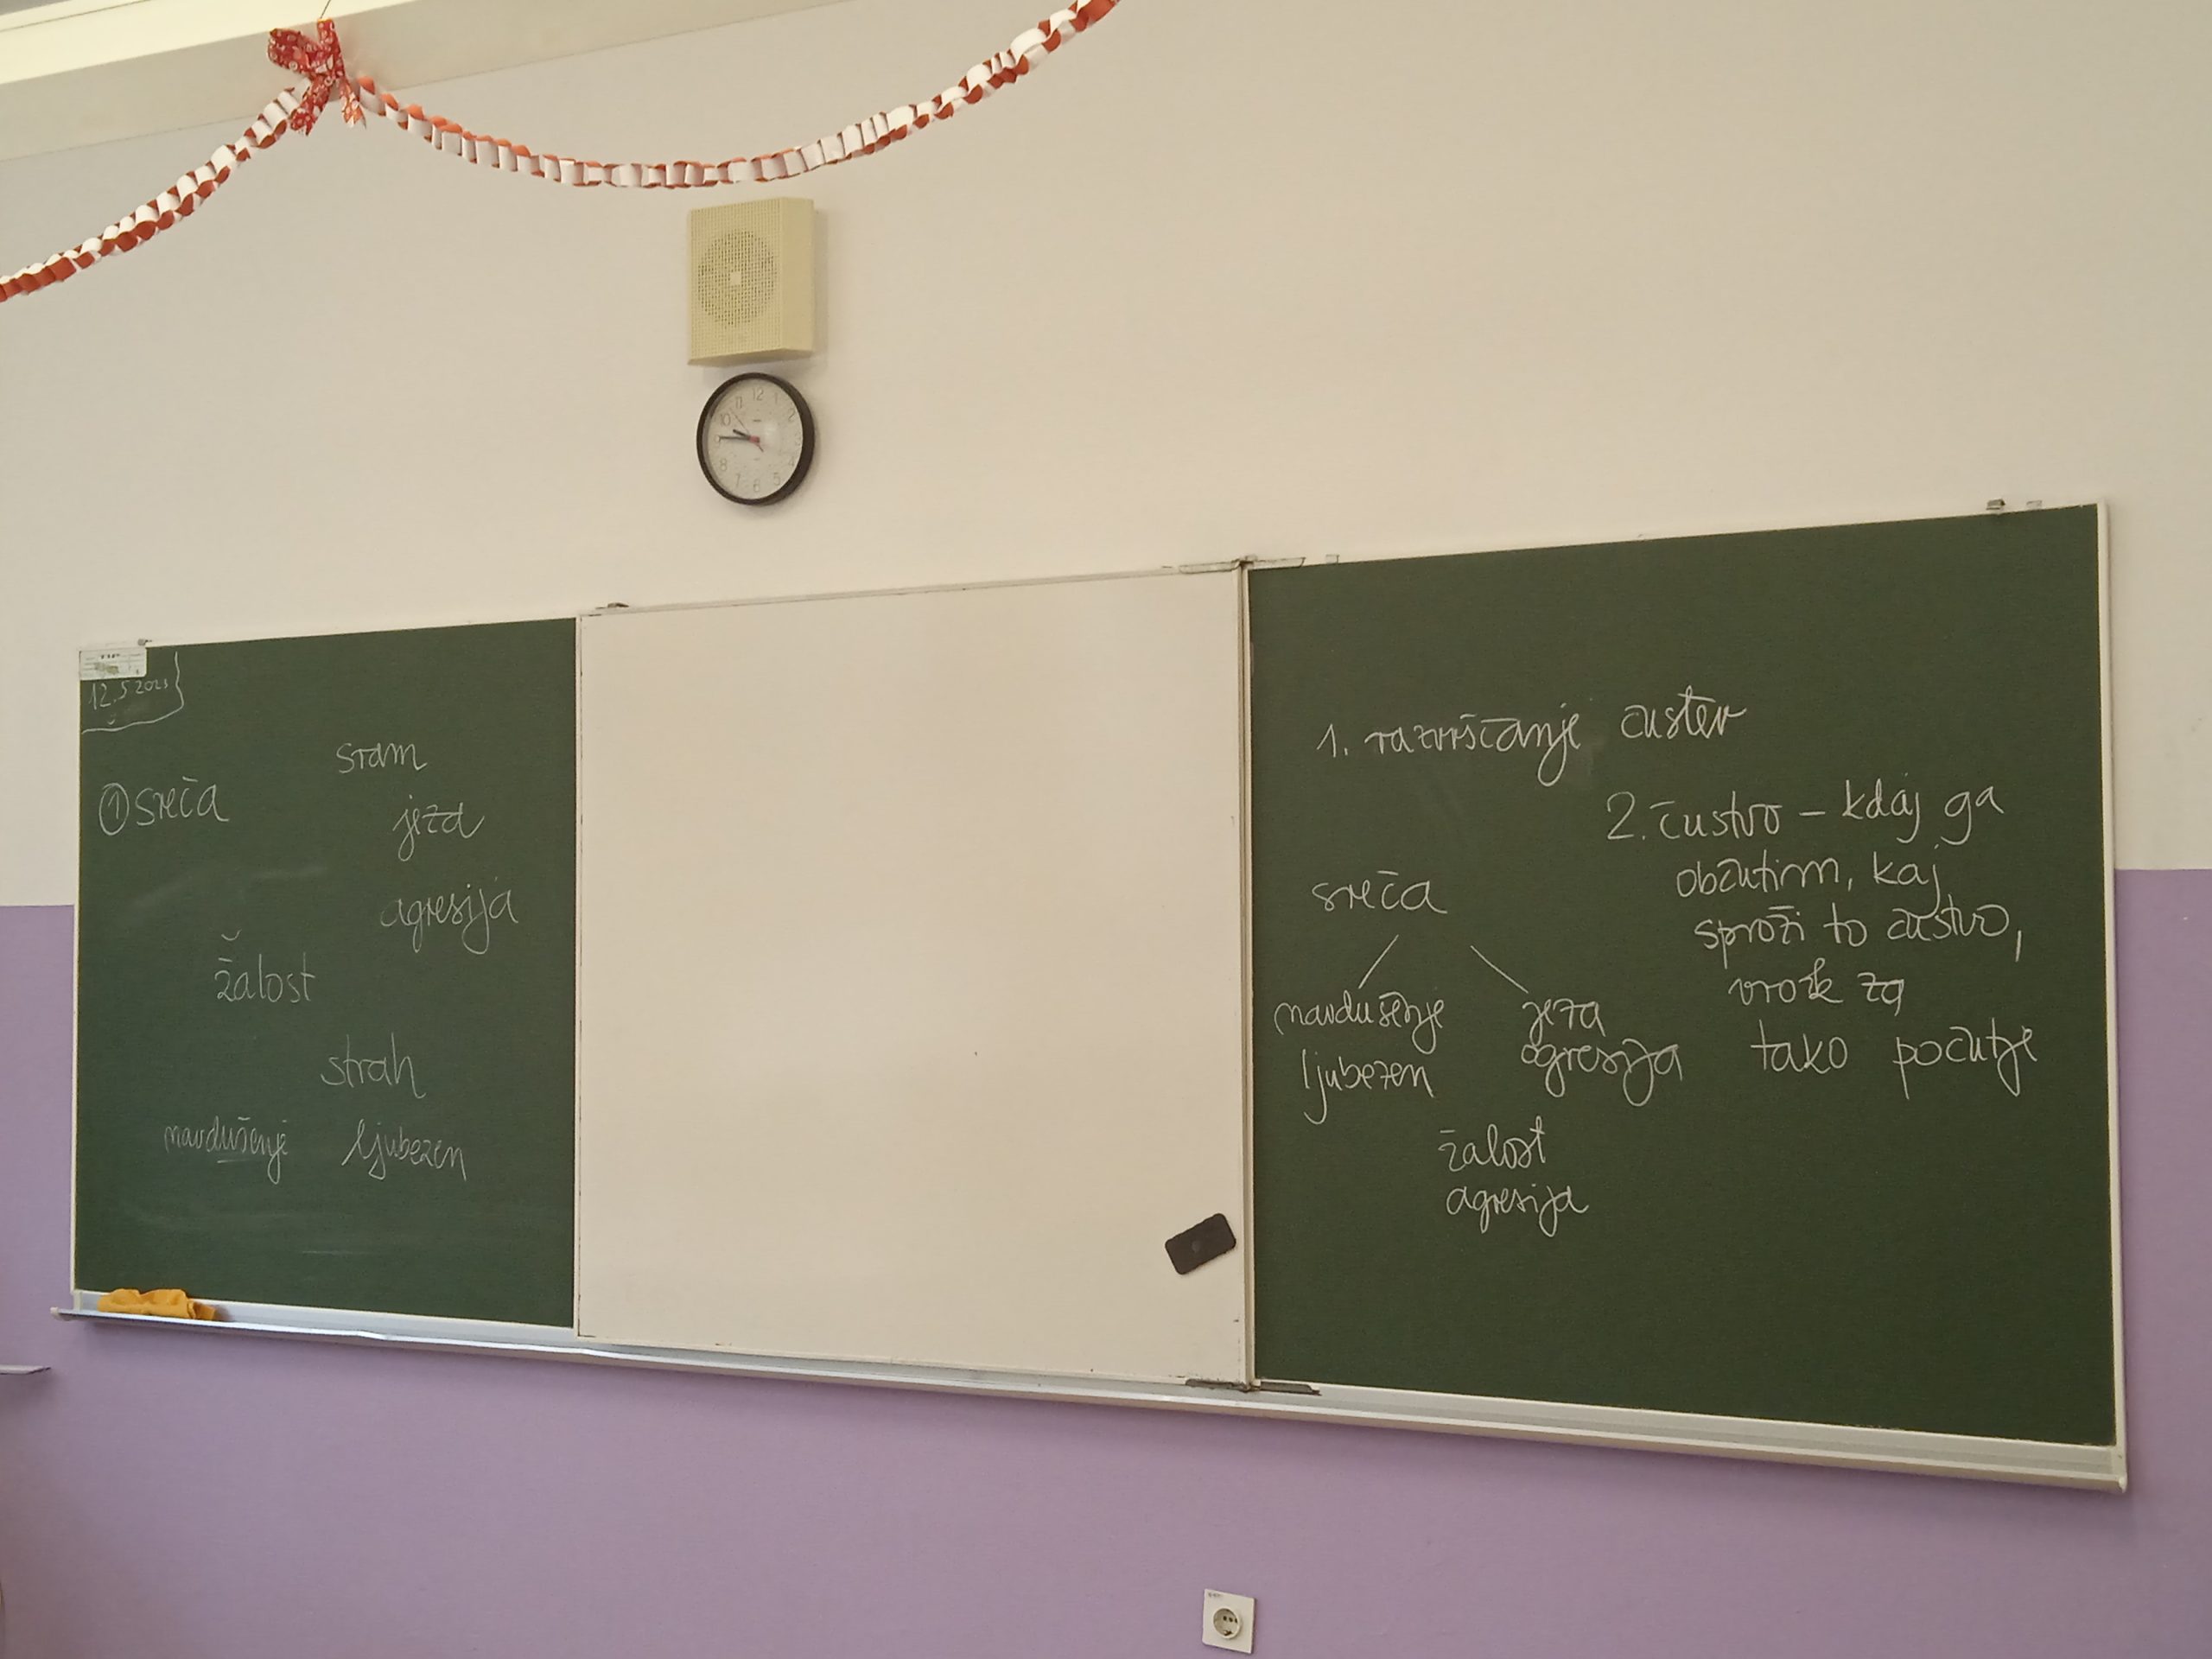 12.5
sram
① sreča
jeza
agresija
žalost
strah
navdušenje ljubezen
1. razvrščanje čustev
2. čustvo – kdaj ga
občutim, kaj
sproži to čustvo,
vrozk za
tako počutje
sreča
navdušenje jeza
ljubezen agresija
žalost
agresija
12
1
2
3
4
5
6
7
8
10
11